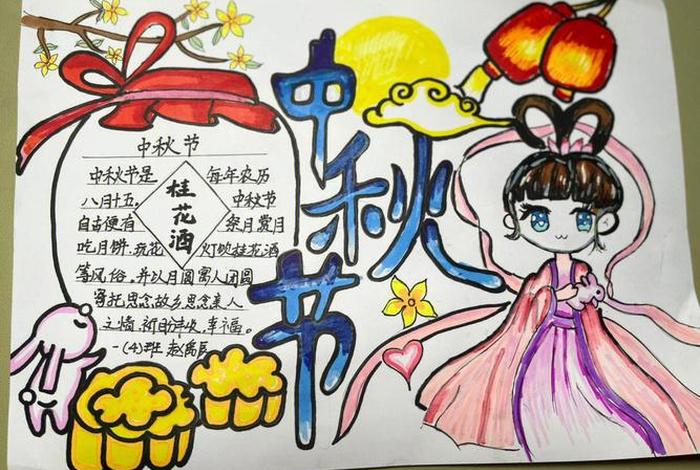 中秋节
中秋节
中秋节是 每年农历
八月十五, 中秋节
自古便有 祭月赏月
吃月饼、玩花 灯饮桂花酒
等风俗,并以月圆寓人团圆
寄托思念故乡思念亲人
之情,祈盼丰收、幸福。
桂花酒
一(4)班